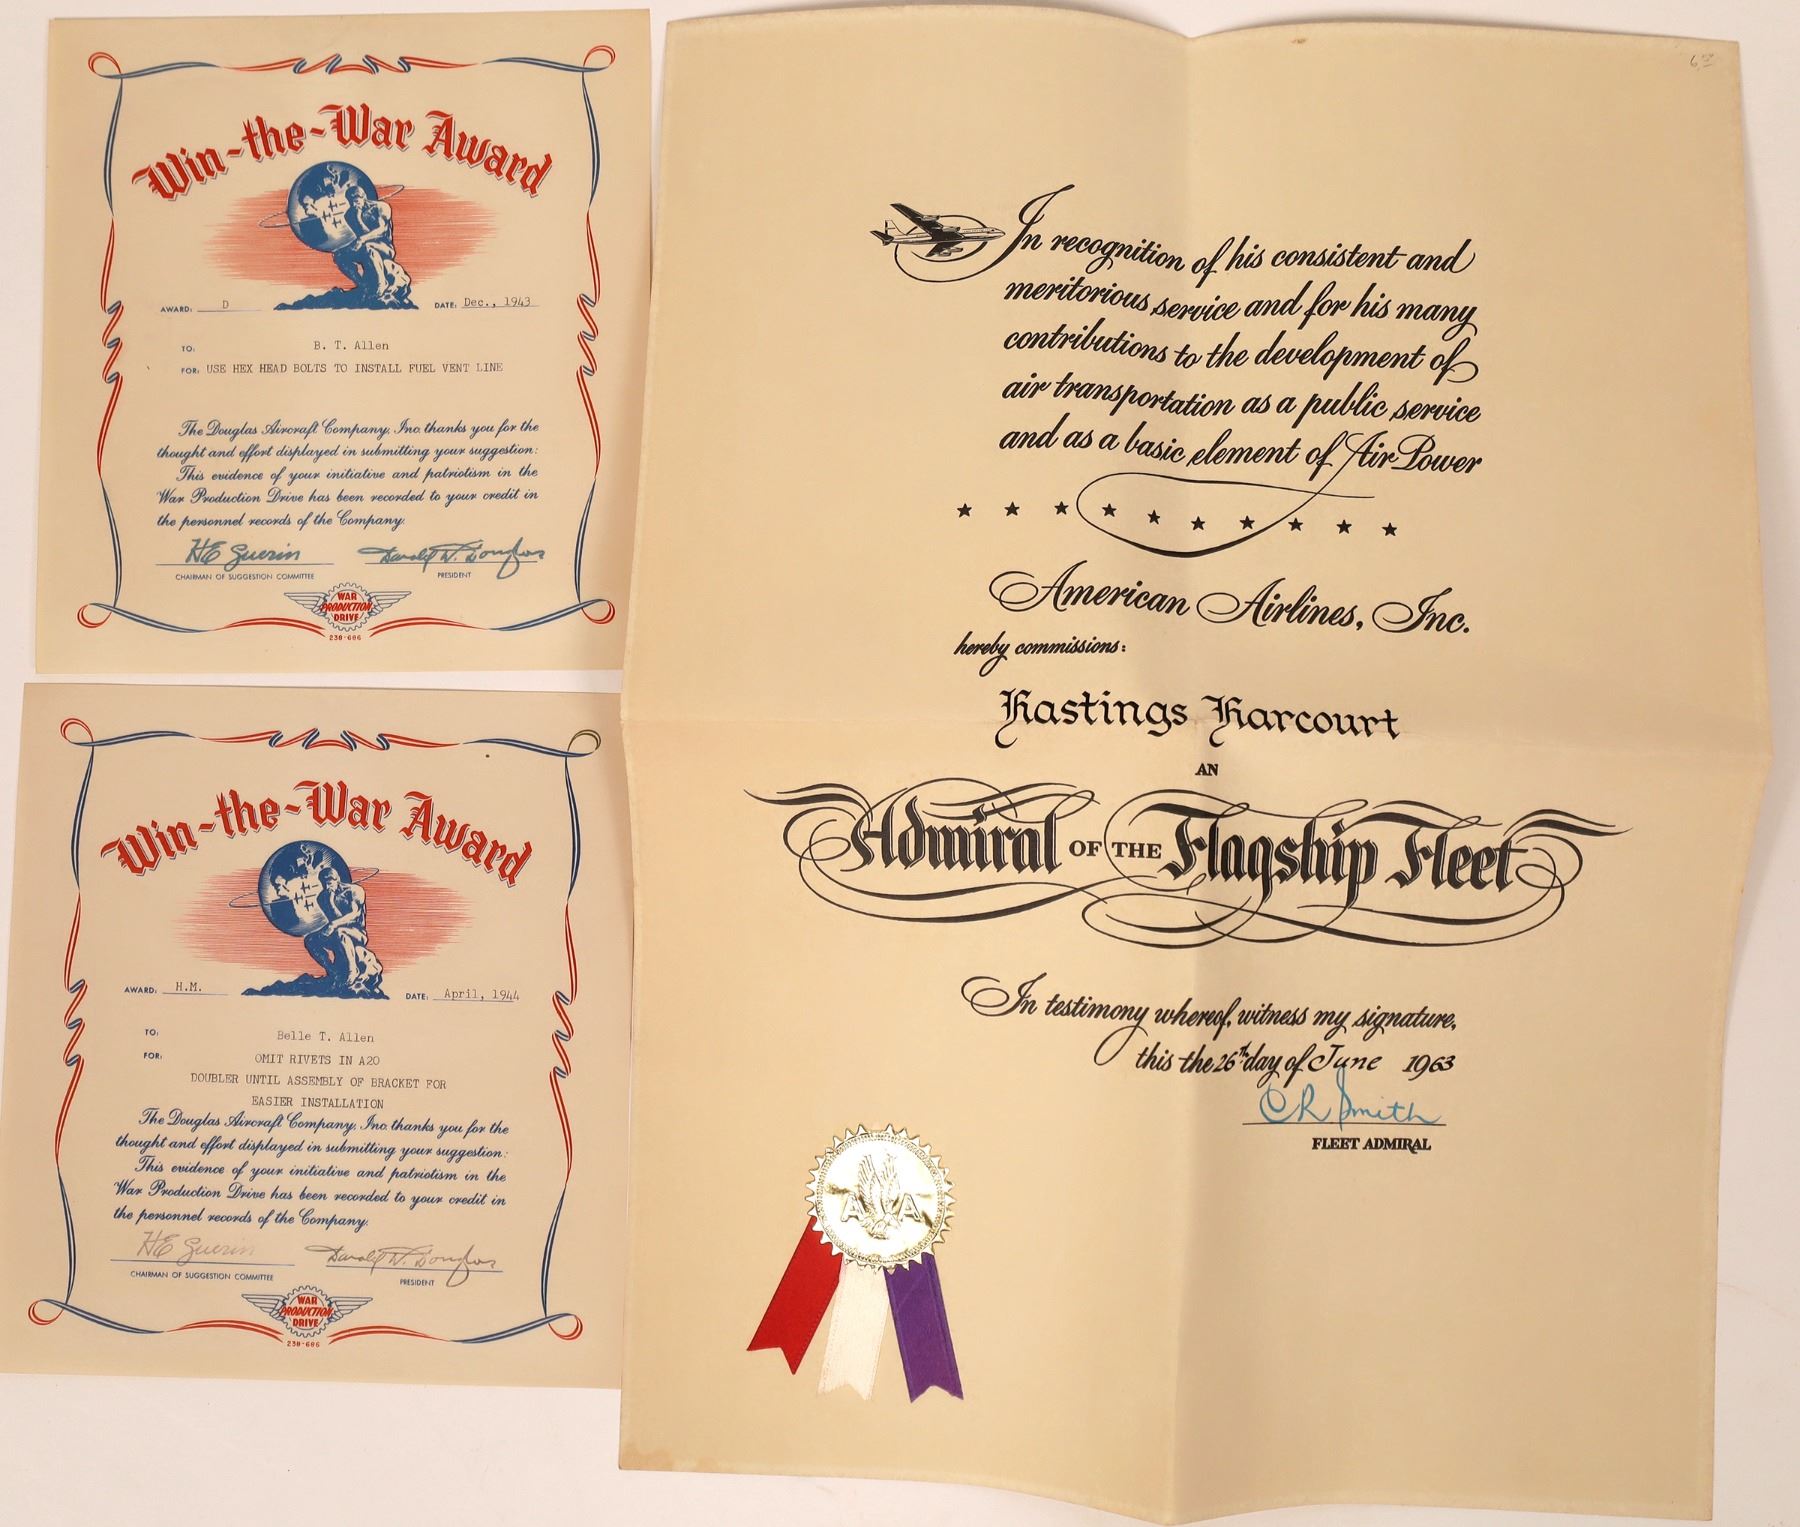 Win-the-War Award
AWARD: D DATE: Dec., 1943
TO: B. T. Allen
FOR: USE HEX HEAD BOLTS TO INSTALL FUEL VENT LINE
The Douglas Aircraft Company, Inc. thanks you for the
thought and effort displayed in submitting your suggestion:
This evidence of your initiative and patriotism in the
War Production Drive has been recorded to your credit in
the personnel records of the Company.
HE Guerin Donald W. Douglas
CHAIRMAN OF SUGGESTION COMMITTEE PRESIDENT
WAR
PRODUCTION
DRIVE
238-686
Win-the-War Award
AWARD: H.M. DATE: April, 1944
TO: Belle T. Allen
FOR: OMIT RIVETS IN A20
DOUBLER UNTIL ASSEMBLY OF BRACKET FOR
EASIER INSTALLATION
The Douglas Aircraft Company, Inc. thanks you for the
thought and effort displayed in submitting your suggestion:
This evidence of your initiative and patriotism in the
War Production Drive has been recorded to your credit in
the personnel records of the Company.
HE Guerin Donald W. Douglas
CHAIRMAN OF SUGGESTION COMMITTEE PRESIDENT
WAR
PRODUCTION
DRIVE
238-686
In recognition of his consistent and
meritorious service and for his many
contributions to the development of
air transportation as a public service
and as a basic element of Air Power
American Airlines, Inc.
hereby commissions:
Hastings Harcourt
AN
Admiral OF THE Flagship Fleet
In testimony whereof, witness my signature,
this the 26th day of June 1963
CR Smith
FLEET ADMIRAL
A A